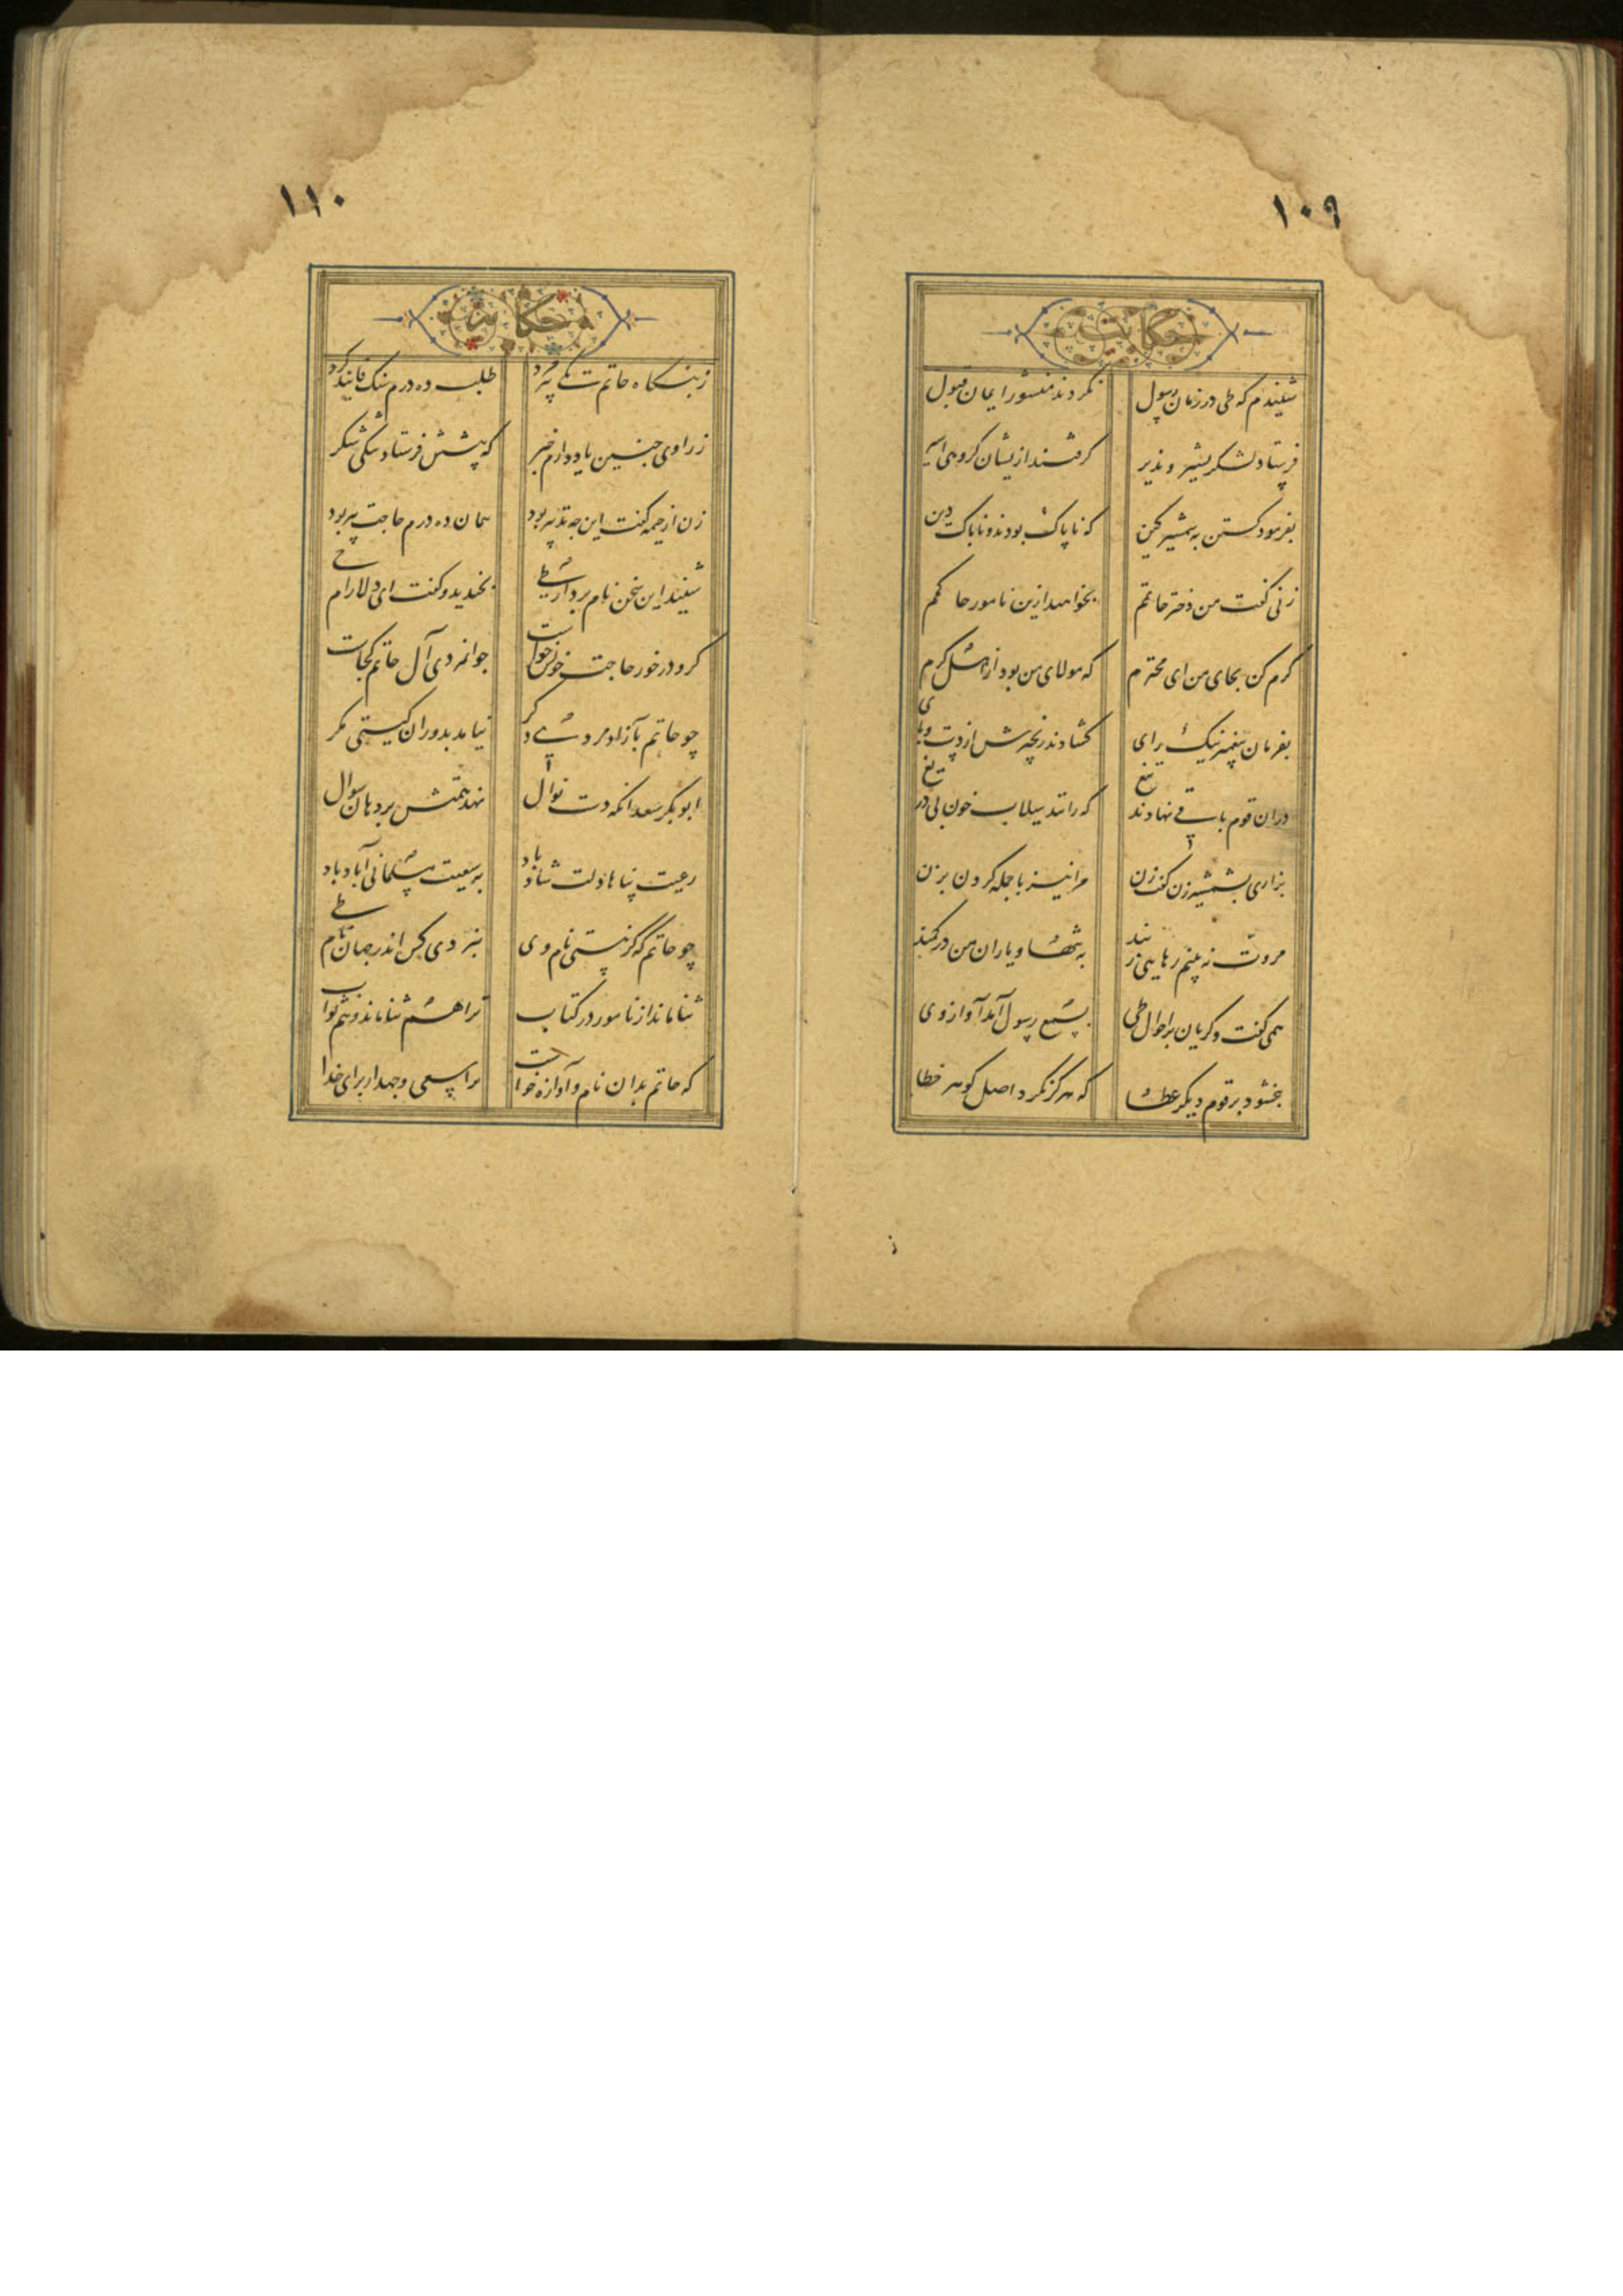 ۱۰۹
حکایت
شنیدم که طی در زمان رسول نکردند منشور ایمان قبول
فرستاد لشکر بشیر و نذیر گرفتند ازیشان گروهی اسیر
بفرمود کشتن به شمشیر کین که ناپاک بودند و ناپاک دین
زنی گفت من دختر حاتمم بخواهید ازین نامور حاکمم
کرم کن بجای من ای محترم که مولای من بود از اهل کرم
بفرمان پیغمبر نیک رای گشادند زنجیرش از دست و پای
دران قوم باقی نهادند تیغ که رانند سیلاب خون بی دریغ
بزاری بشمشیر زن گفت زن مرا نیز با جمله گردن بزن
مروت نه بینم رهایی ز بند به تنها و یاران من در کمند
همی گفت و گریان بر احوال طی بسمع رسول آمد آواز وی
بخشود بر قوم دیگر عطا که هرگز نکرد اصل گوهر خطا
۱۱۰
حکایت
ز بنگاه حاتم یکی پیرمرد طلب ده درم سنگ فانید کرد
ز راوی چنین یاد دارم خبر که پیشش فرستاد تنگی شکر
زن از خیمه گفت این چه تدبیر بود همان ده درم حاجت پیر بود
شنید این سخن نام بردار طی بخندید و گفت ای دلارام حی
گر او در خور حاجت خویش خواست جوانمردی آل حاتم کجاست
چو حاتم بآزاد مردی دگر نیامد بدوران گیتی مگر
ابوبکر سعد آنکه دست نوال نهد همتش بر دهان سوال
رعیت پناها دلت شاد باد به سعیت مسلمانی آباد باد
چو حاتم که گر نیستی نام وی نبردی کس اندر جهان نام طی
ثنا ماند از نامور در کتاب ترا هم ثنا ماند و هم ثواب
که حاتم بدان نام و آوازه خواست ترا سعی و جهد از برای خدا